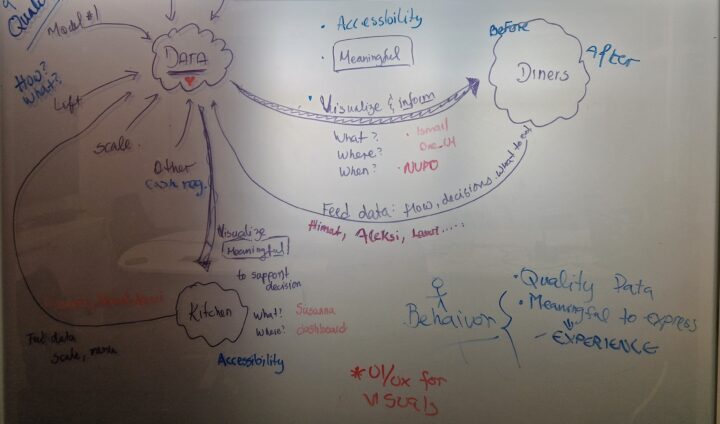 Quality
Model #1
DATA
How?
What?
Lift
Scale
Other
Cash reg.
• Accessbility
• Meaningful
• Visualize & inform
What?
Where?
When?
• Ismail
• NUPO
Before
After
Diners
Feed data: flow, decisions, what to eat
Himat, Aleksi, Lauri.....
Visualize
Meaningful
to support
decision
Kitchen
What?
Where?
Susanna
dashboard
Accessibility
data
scale, menu
Behaivor
• Quality Data
• Meaningful to express
EXPERIENCE
* UI/UX for
VISUELS